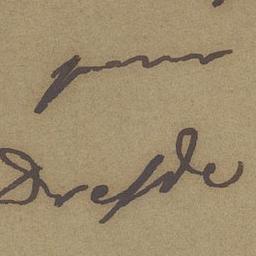 pour
Dresde